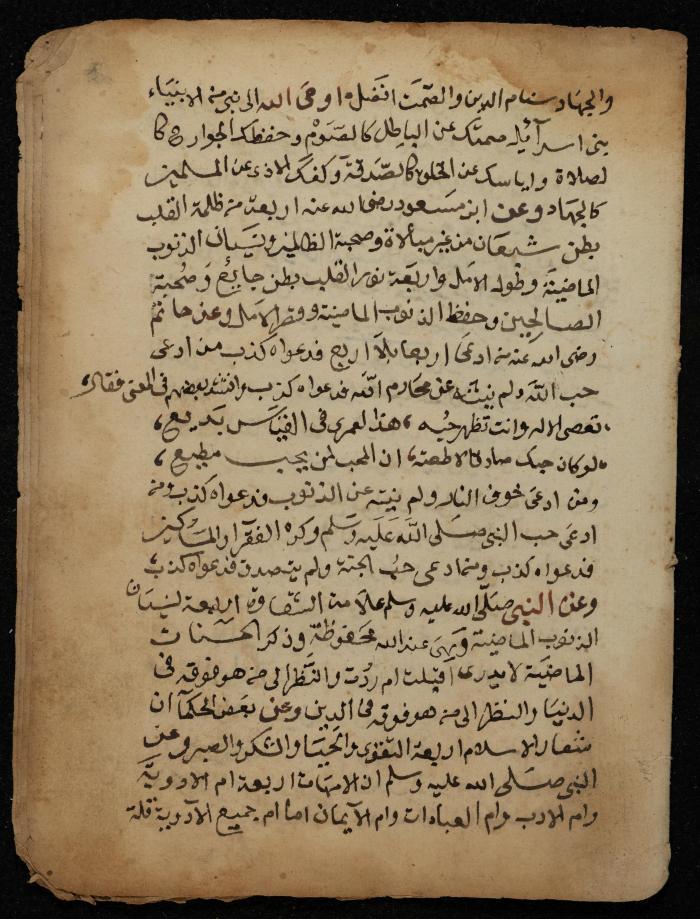 والجهاد سنام الدين والصمت افضل اوحى الله الى نبي من الانبياء
بنى اسرآئيل صمتك عن الباطل كالصوم وحفظك الجوارح كا
لصلاة واياسك عن الخلق كالصدقة وكفك الاذى عن المسلمين
كالجهاد وعن ابن مسعود رضى الله عنه اربعة من ظلمة القلب
بطن شبعان من غير مبالاة وصحبة الظالمين ونسيان الذنوب
الماضية وطول الامل واربعة نور القلب بطن جائع وصحبة
الصالحين وحفظ الذنوب الماضية وقصر الامل وعن حاتم
رضى الله عنه من ادعى اربعا بلا اربع فدعواه كذب من ادعى
حب الله ولم ينته عن محارم الله فدعواه كذب وانشد بعضهم فى المعنى فقال
تعصى الاله وانت تظهر حبه هذا لعمرى فى القياس بديع
لو كان حبك صادقا لاطعته ان المحب لمن يحب مطيع
ومن ادعى خوف النار ولم ينته عن الذنوب فدعواه كذب ومن
ادعى حب النبى صلى الله عليه وسلم وكره الفقرآ والمساكين
فدعواه كذب ومن ادعى حب الجنة ولم يتصدق فدعواه كذب
وعن النبى صلى الله عليه وسلم علامة الشقاوة اربعة نسيان
الذنوب الماضية وهى عند الله محفوظة وذكر الحسنات
الماضية لا يدرى اقبلت ام ردت والنظر الى من هو فوقه فى
الدنيا والنظر الى من هو فوقه فى الدين وعن بعض الحكمآ ان
شعار الاسلام اربعة التقوى والحيا والشكر والصبر وعن
النبى صلى الله عليه وسلم ان الامهات اربعة ام الادوية
وام الادب وام العبادات وام الآيمان اما ام جميع الآدوية قلة